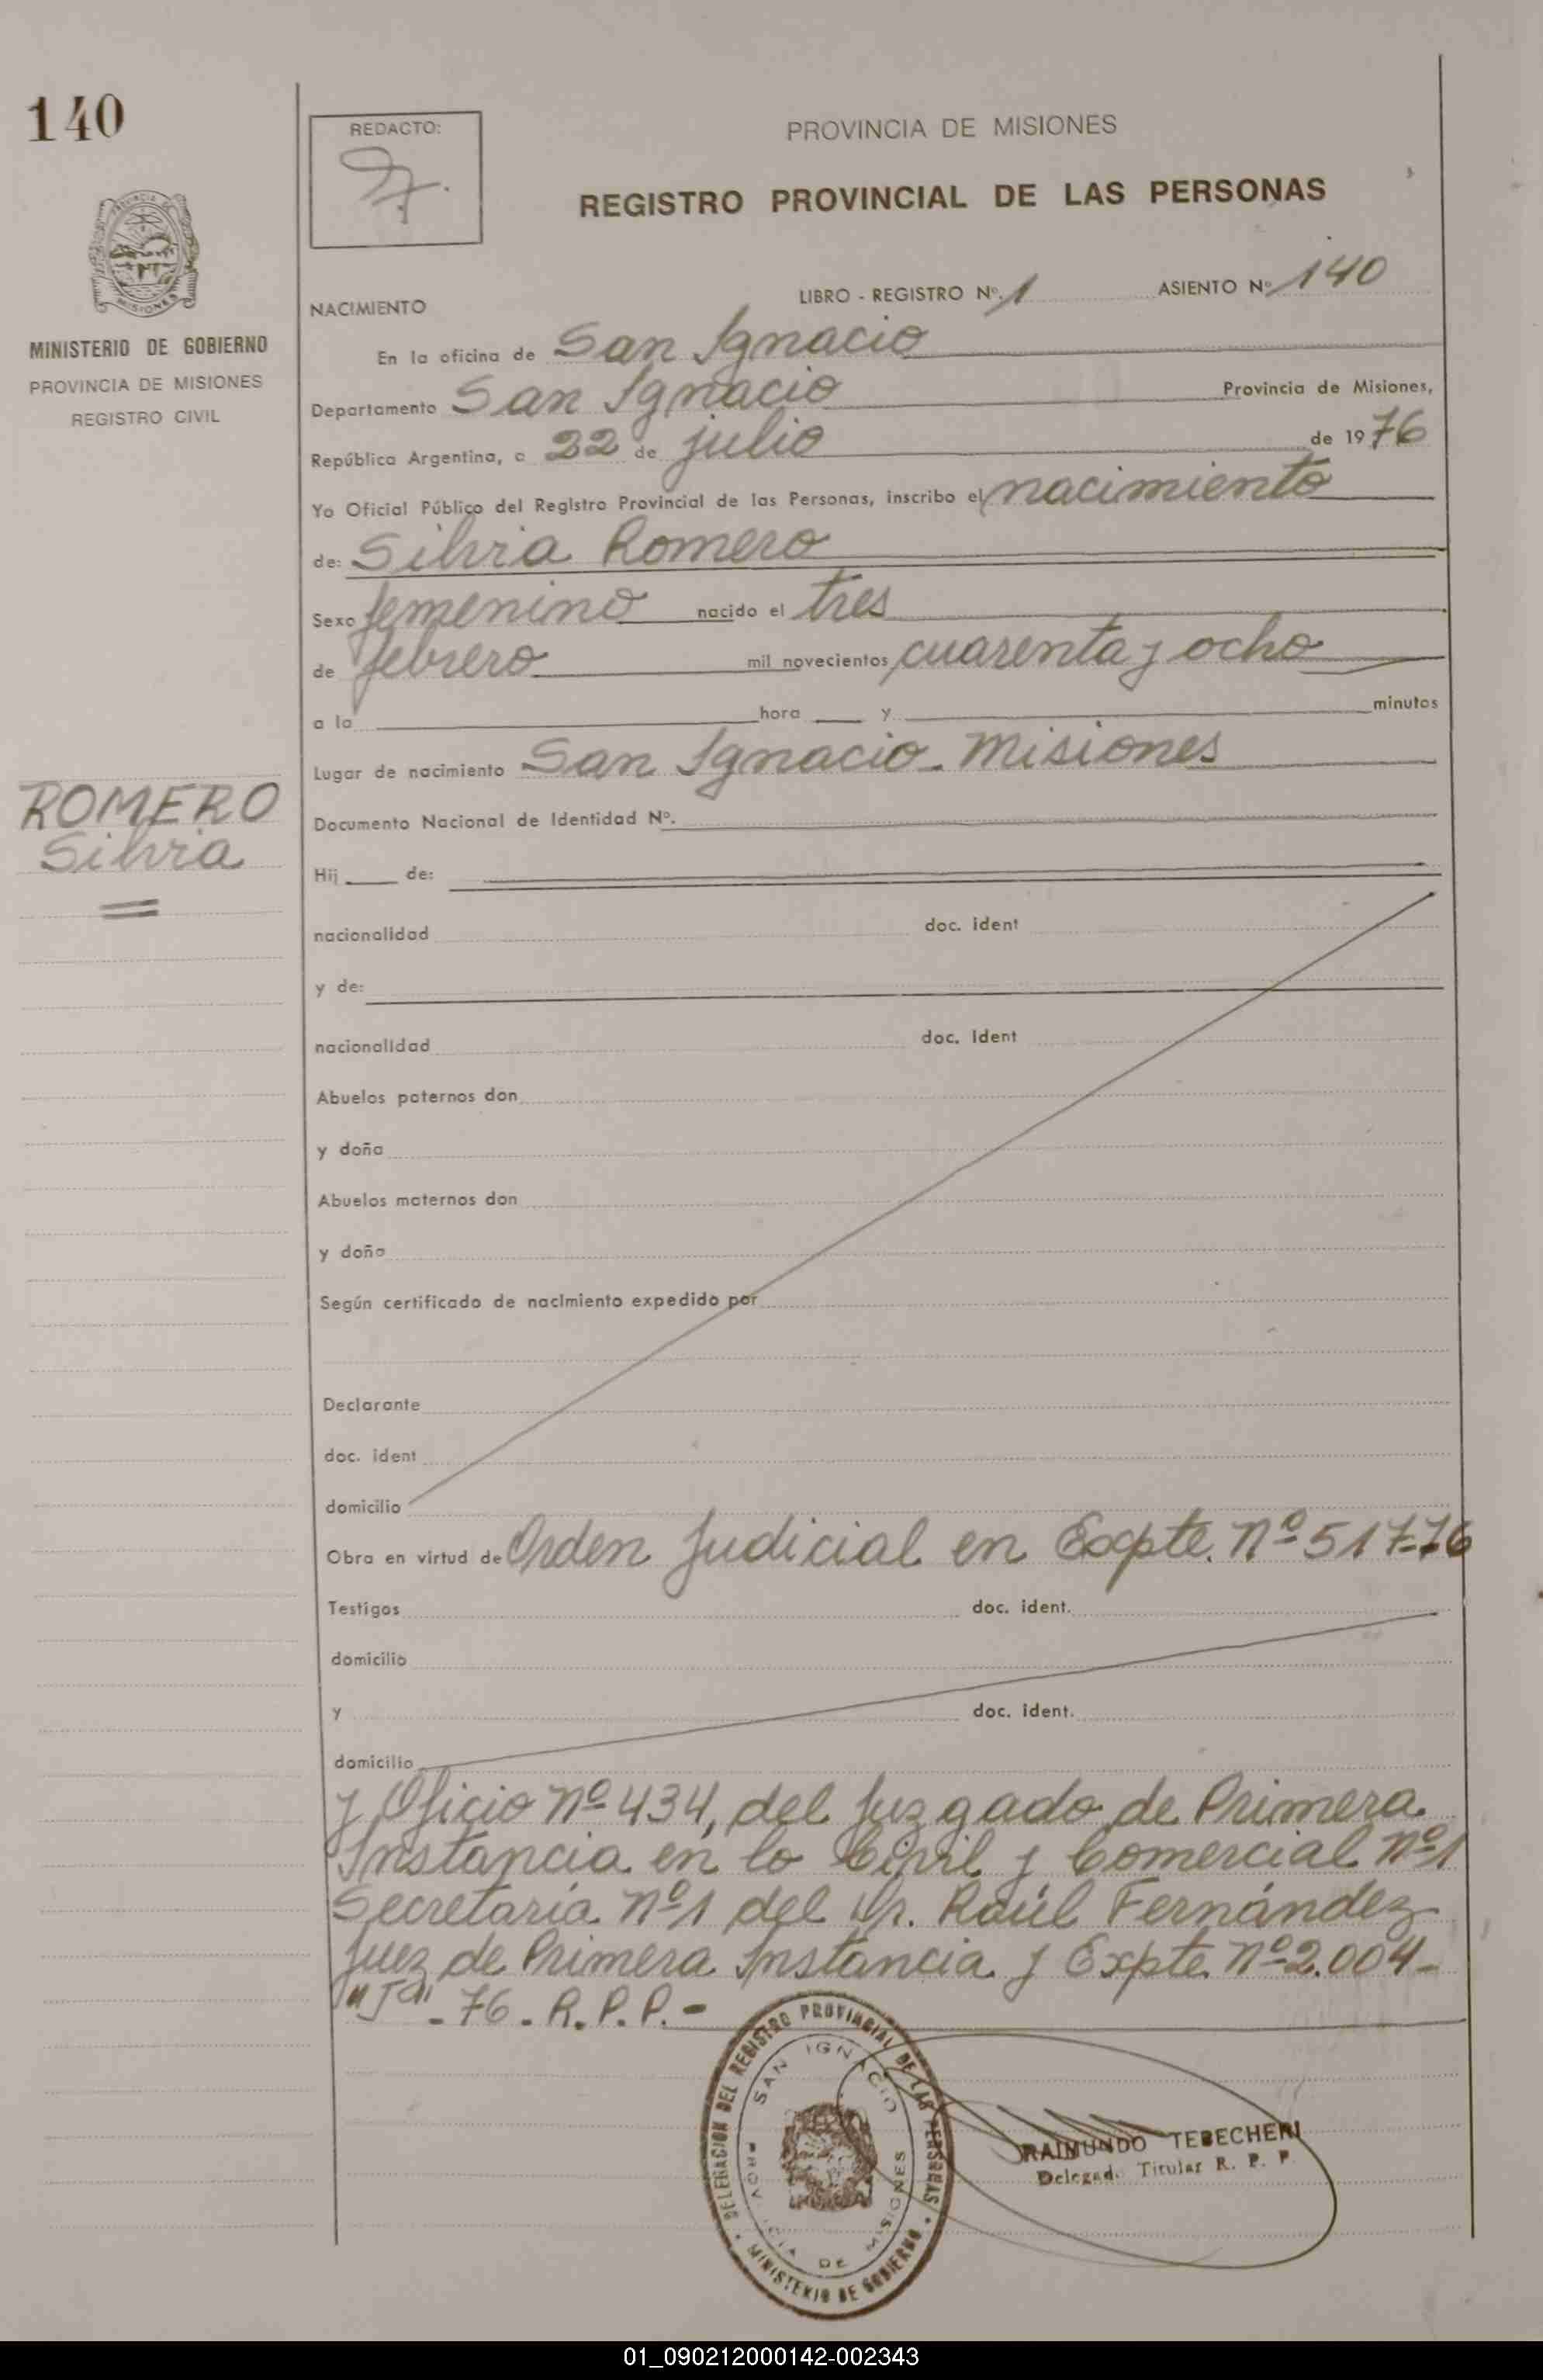 140
REDACTO:
PROVINCIA DE MISIONES
REGISTRO PROVINCIAL DE LAS PERSONAS
MINISTERIO DE GOBIERNO
PROVINCIA DE MISIONES
REGISTRO CIVIL
NACIMIENTO
LIBRO - REGISTRO Nº. 1 ASIENTO Nº 140
En la oficina de San Ignacio
Departamento San Ignacio Provincia de Misiones,
República Argentina, a 22 de julio de 1976
Yo Oficial Público del Registro Provincial de las Personas, inscribo el nacimiento
de: Silvia Romero
Sexo femenino nacido el tres
de febrero mil novecientos cuarenta y ocho
a la hora y minutos
Lugar de nacimiento San Ignacio - Misiones
ROMERO
Silvia
Documento Nacional de Identidad Nº.
Hij de:
nacionalidad doc. ident
y de:
nacionalidad doc. ident
Abuelos paternos don
y doña
Abuelos maternos don
y doña
Según certificado de nacimiento expedido por
Declarante
doc. ident
domicilio
Obra en virtud de Orden Judicial en Expte. Nº 517-76
Testigos doc. ident.
domicilio
y doc. ident.
domicilio
y Oficio nº 434, del Juzgado de Primera
Instancia en lo Civil y Comercial nº 1
Secretaría nº 1 del Dr. Raúl Fernández
Juez de Primera Instancia y Expte nº 2.004-
-76-R.P.P.-
DELEGACION DEL REGISTRO PROVINCIAL DE LAS PERSONAS
MINISTERIO DE GOBIERNO
SAN IGNACIO
PROVINCIA DE MISIONES
RAIMUNDO TEBECHERI
Delegado Titular R. P. P.
01_090212000142-002343